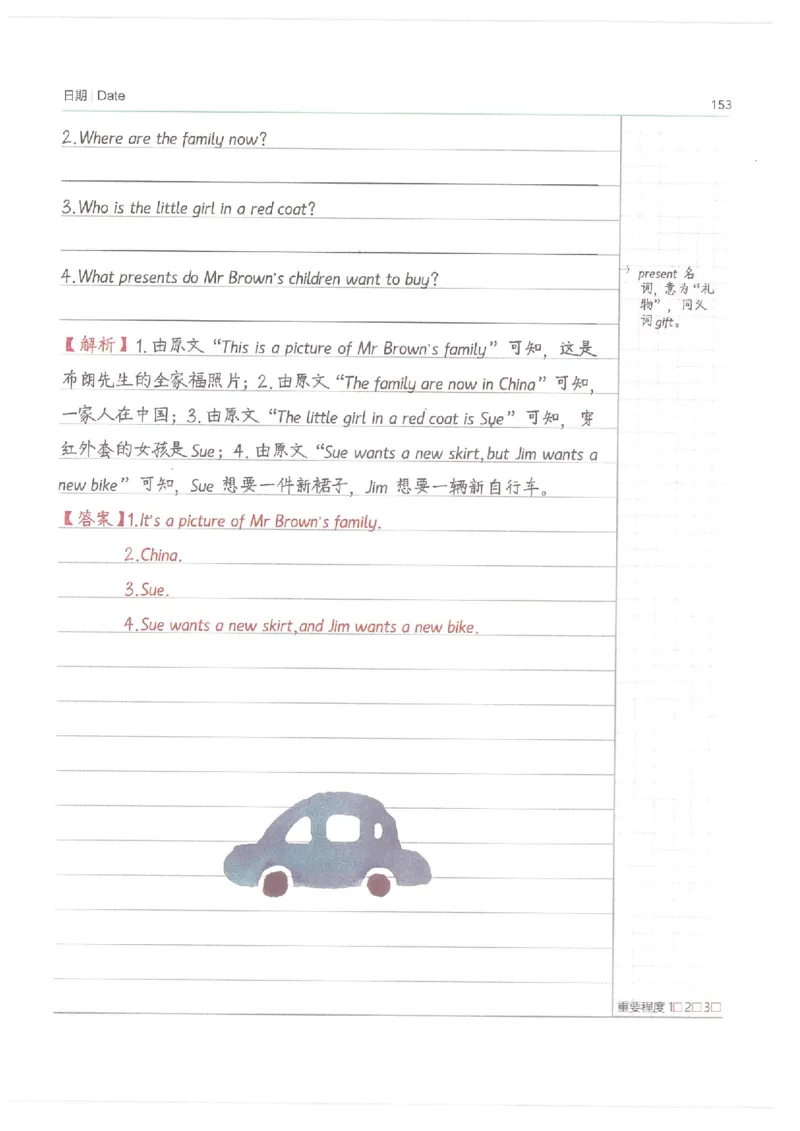 日期 | Date
153
2.Where are the family now?
3.Who is the little girl in a red coat?
4.What presents do Mr Brown's children want to buy?
present 名
词，意为“礼
物”，同义
词gift。
【解析】1.由原文“This is a picture of Mr Brown's family”可知，这是
布朗先生的全家福照片；2.由原文“The family are now in China”可知，
一家人在中国；3.由原文“The little girl in a red coat is Sue”可知，穿
红外套的女孩是Sue；4.由原文“Sue wants a new skirt,but Jim wants a
new bike”可知，Sue 想要一件新裙子，Jim 想要一辆新自行车。
【答案】1.It's a picture of Mr Brown's family.
2.China.
3.Sue.
4.Sue wants a new skirt,and Jim wants a new bike.
重要程度 1□ 2□ 3□